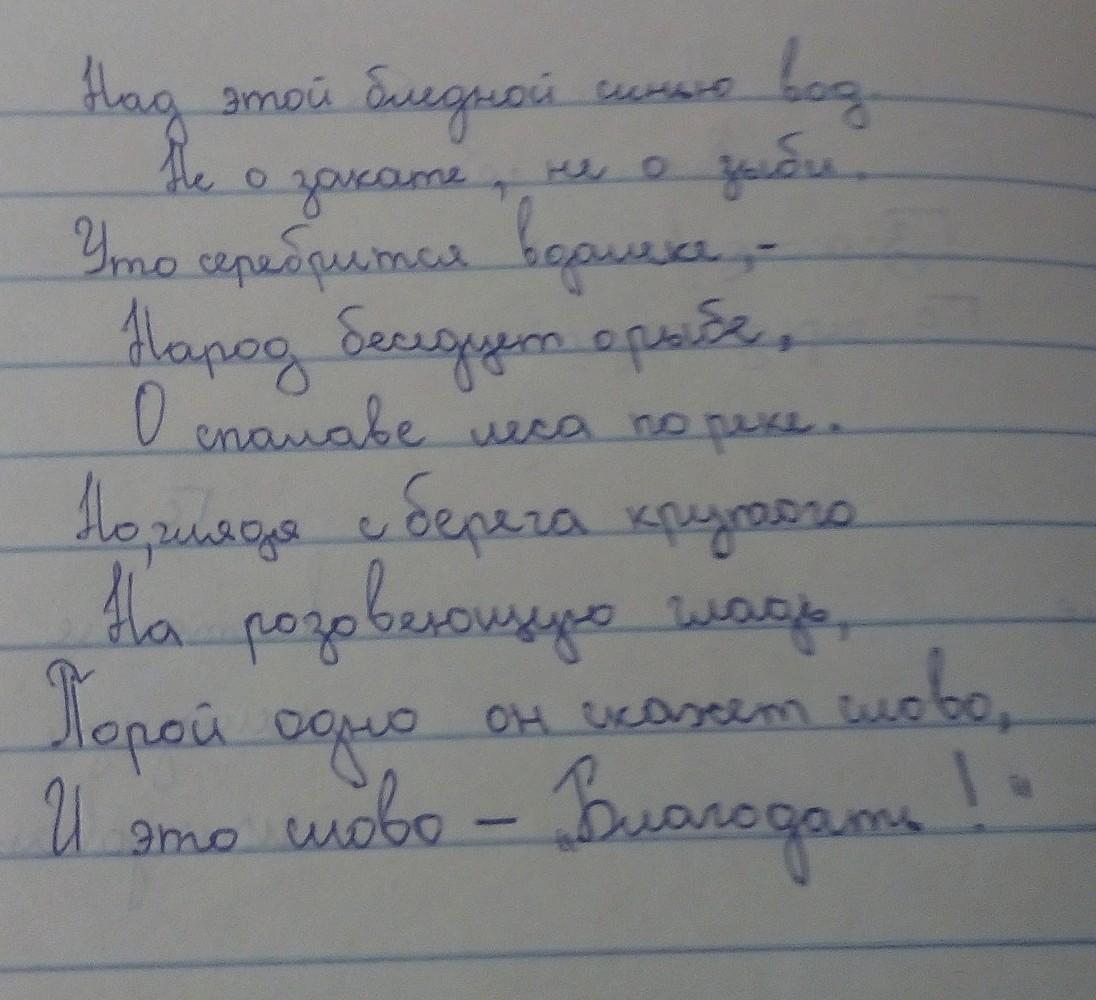 Над этой бледной синью вод
Не о закате, не о зыби,
Что серебрится вдалеке,-
Народ беседует о рыбе,
О спалаве леса по реке.
Но, глядя с берега крутого
На розовеющую гладь,
Порой одно он скажет слово,
И это слово - „Благодать!"